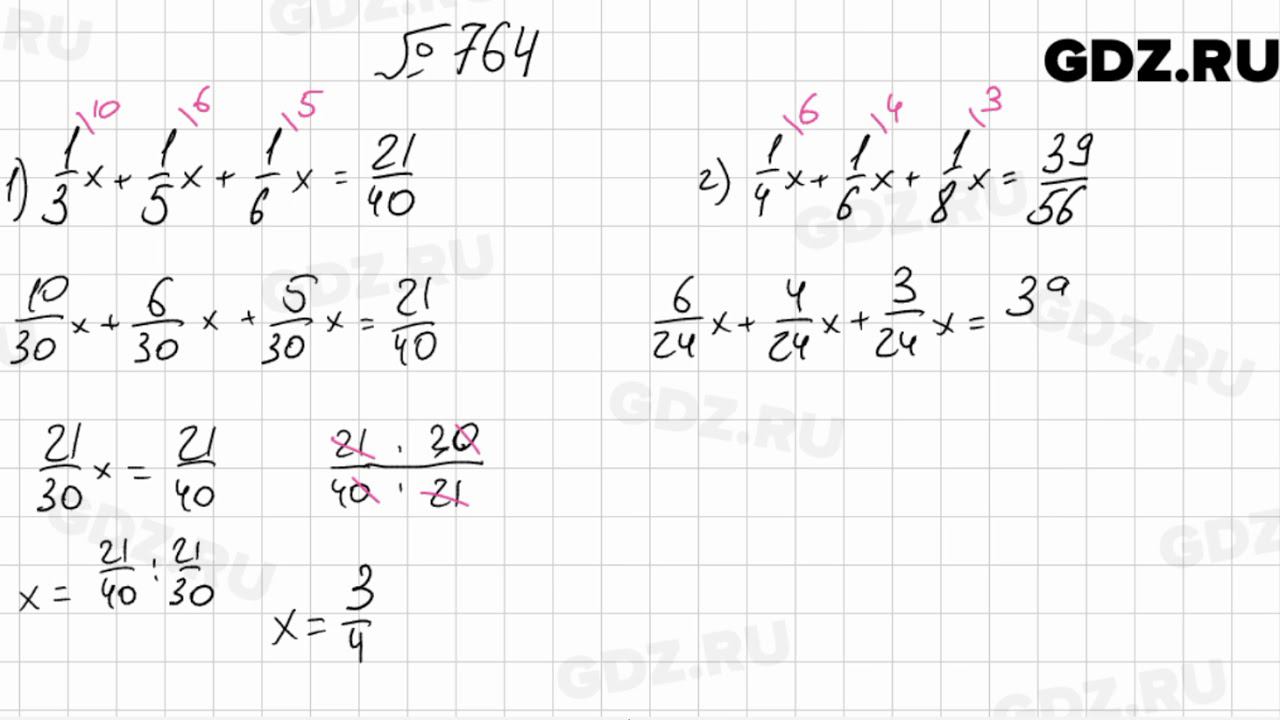 № 764
GDZ.RU
1) 1/3 \10 x + 1/5 \6 x + 1/6 \5 x = 21/40
10/30 x + 6/30 x + 5/30 x = 21/40
21/30 x = 21/40
21 · 30 / 40 · 21
x = 21/40 : 21/30
x = 3/4
2) 1/4 \6 x + 1/6 \4 x + 1/8 \3 x = 39/56
6/24 x + 4/24 x + 3/24 x = 39